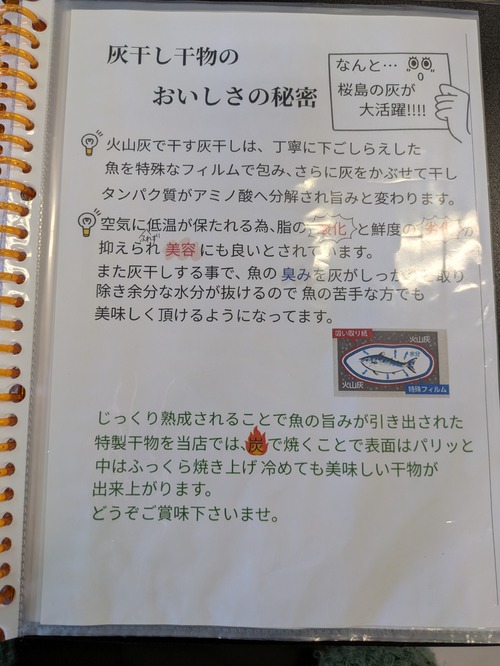 灰干し干物の
おいしさの秘密
なんと…
桜島の灰が
大活躍!!!!
火山灰で干す灰干しは、丁寧に下ごしらえした
魚を特殊なフィルムで包み、さらに灰をかぶせて干し
タンパク質がアミノ酸へ分解され旨みと変わります。
空気に低温が保たれる為、脂の 酸化 と鮮度の
抑えられ 美容 にも良いとされています。
また灰干しする事で、魚の 臭み を灰がしっかり 取り
除き余分な水分が抜けるので魚の苦手な方でも
美味しく頂けるようになってます。
吸い取り紙
火山灰
水分
火山灰
特殊フィルム
じっくり熟成されることで魚の旨みが引き出された
特製干物を当店では、炭で焼くことで表面はパリッと
中はふっくら焼き上げ 冷めても美味しい干物が
出来上がります。
どうぞご賞味下さいませ。